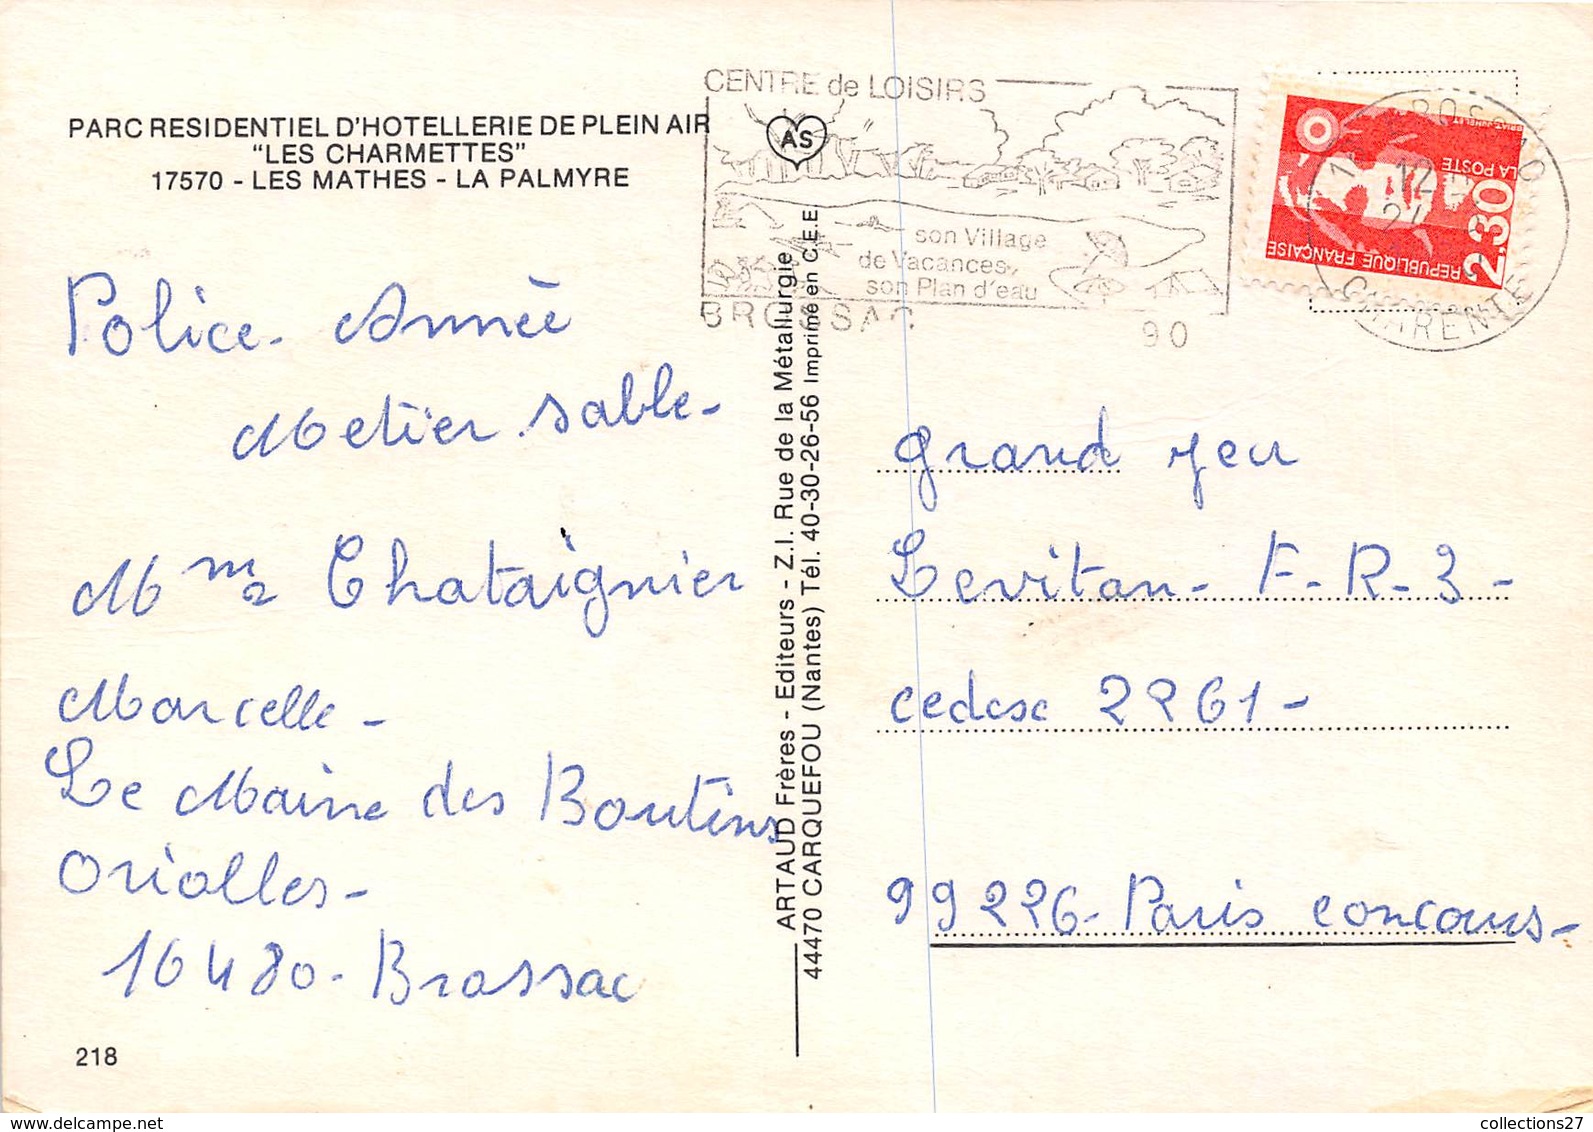 PARC RESIDENTIEL D'HOTELLERIE DE PLEIN AIR
"LES CHARMETTES"
17570 - LES MATHES - LA PALMYRE
AS
CENTRE de LOISIRS
son Village
de Vacances,
son Plan d'eau
BROSSAC
90
12
CHARENTE
LA POSTE
2,30
REPUBLIQUE FRANÇAISE
Police - Année
Metier sable -
Mme Chataignier
Marcelle -
Le Maine des Boutins
Oriolles -
16480 - Brossac
218
ARTAUD Frères - Editeurs - Z.I. Rue de la Métallurgie
44470 CARQUEFOU (Nantes) Tél. 40-30-26-56 Imprimé en C.E.E
grand jeu
Levitan - F - R - 3 -
cedex 2261 -
99226 - Paris concours -
collections27